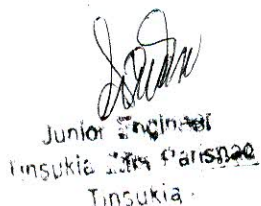 Junior Engineer
Tinsukia Zilla Parishad
Tinsukia